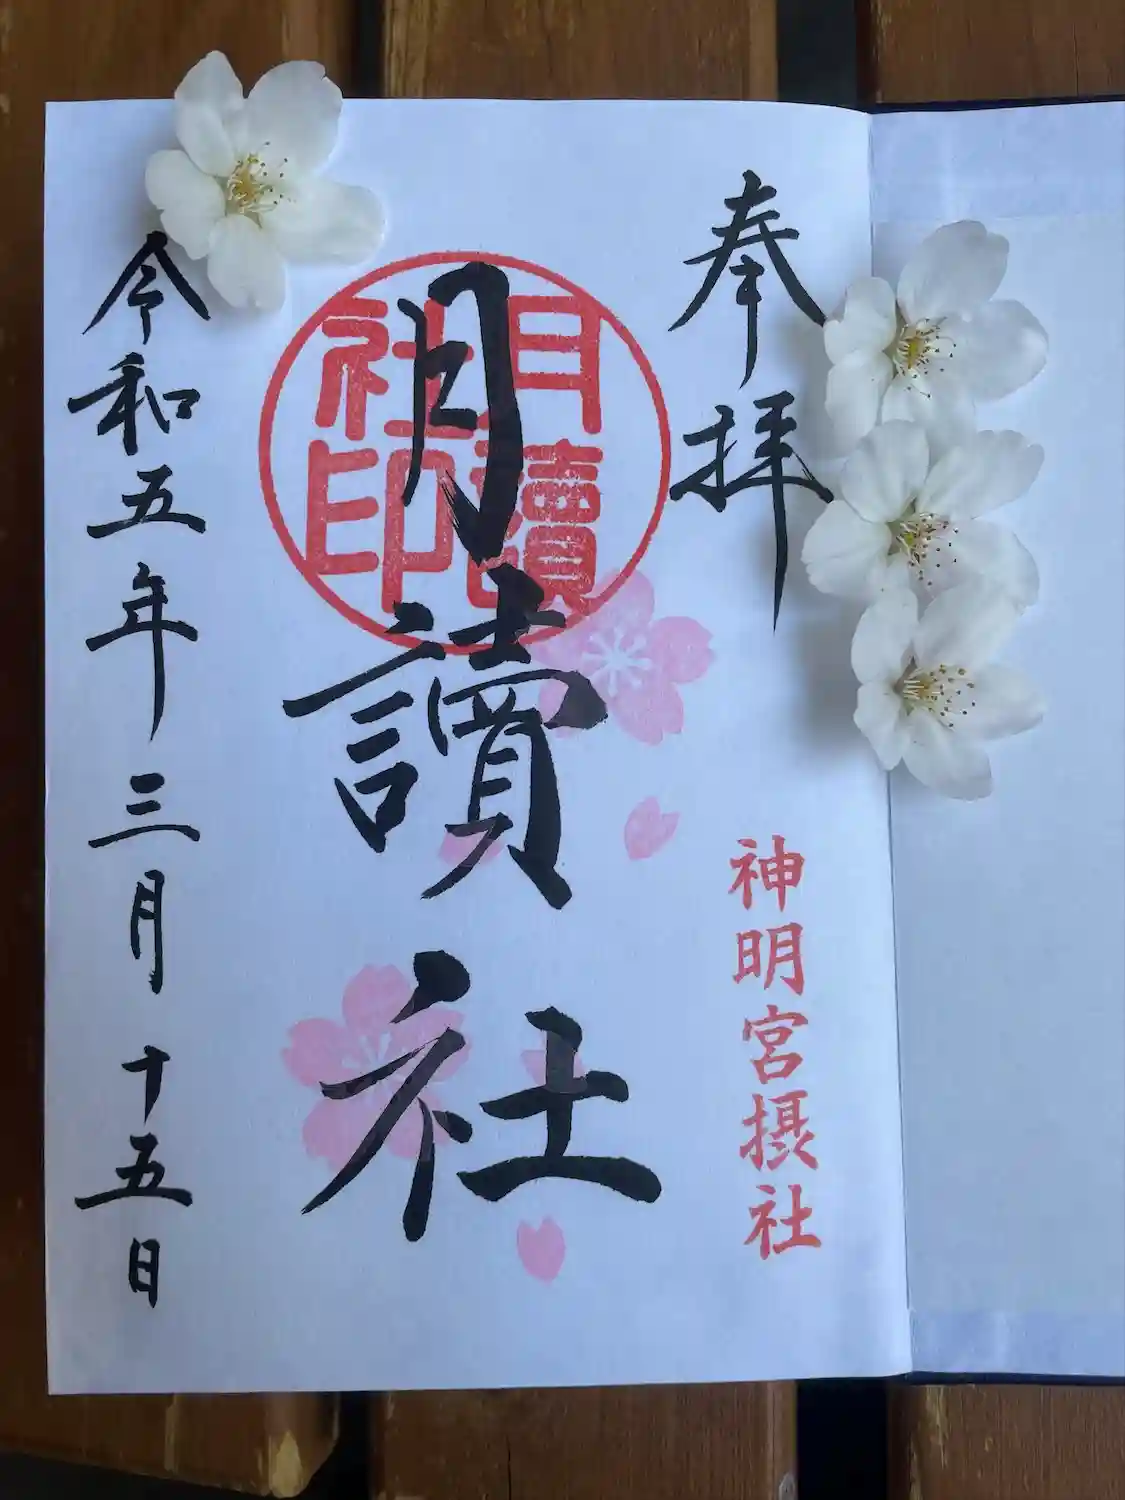 奉拝
神明宮摂社
月讀社
月讀
社印
令和五年三月十五日